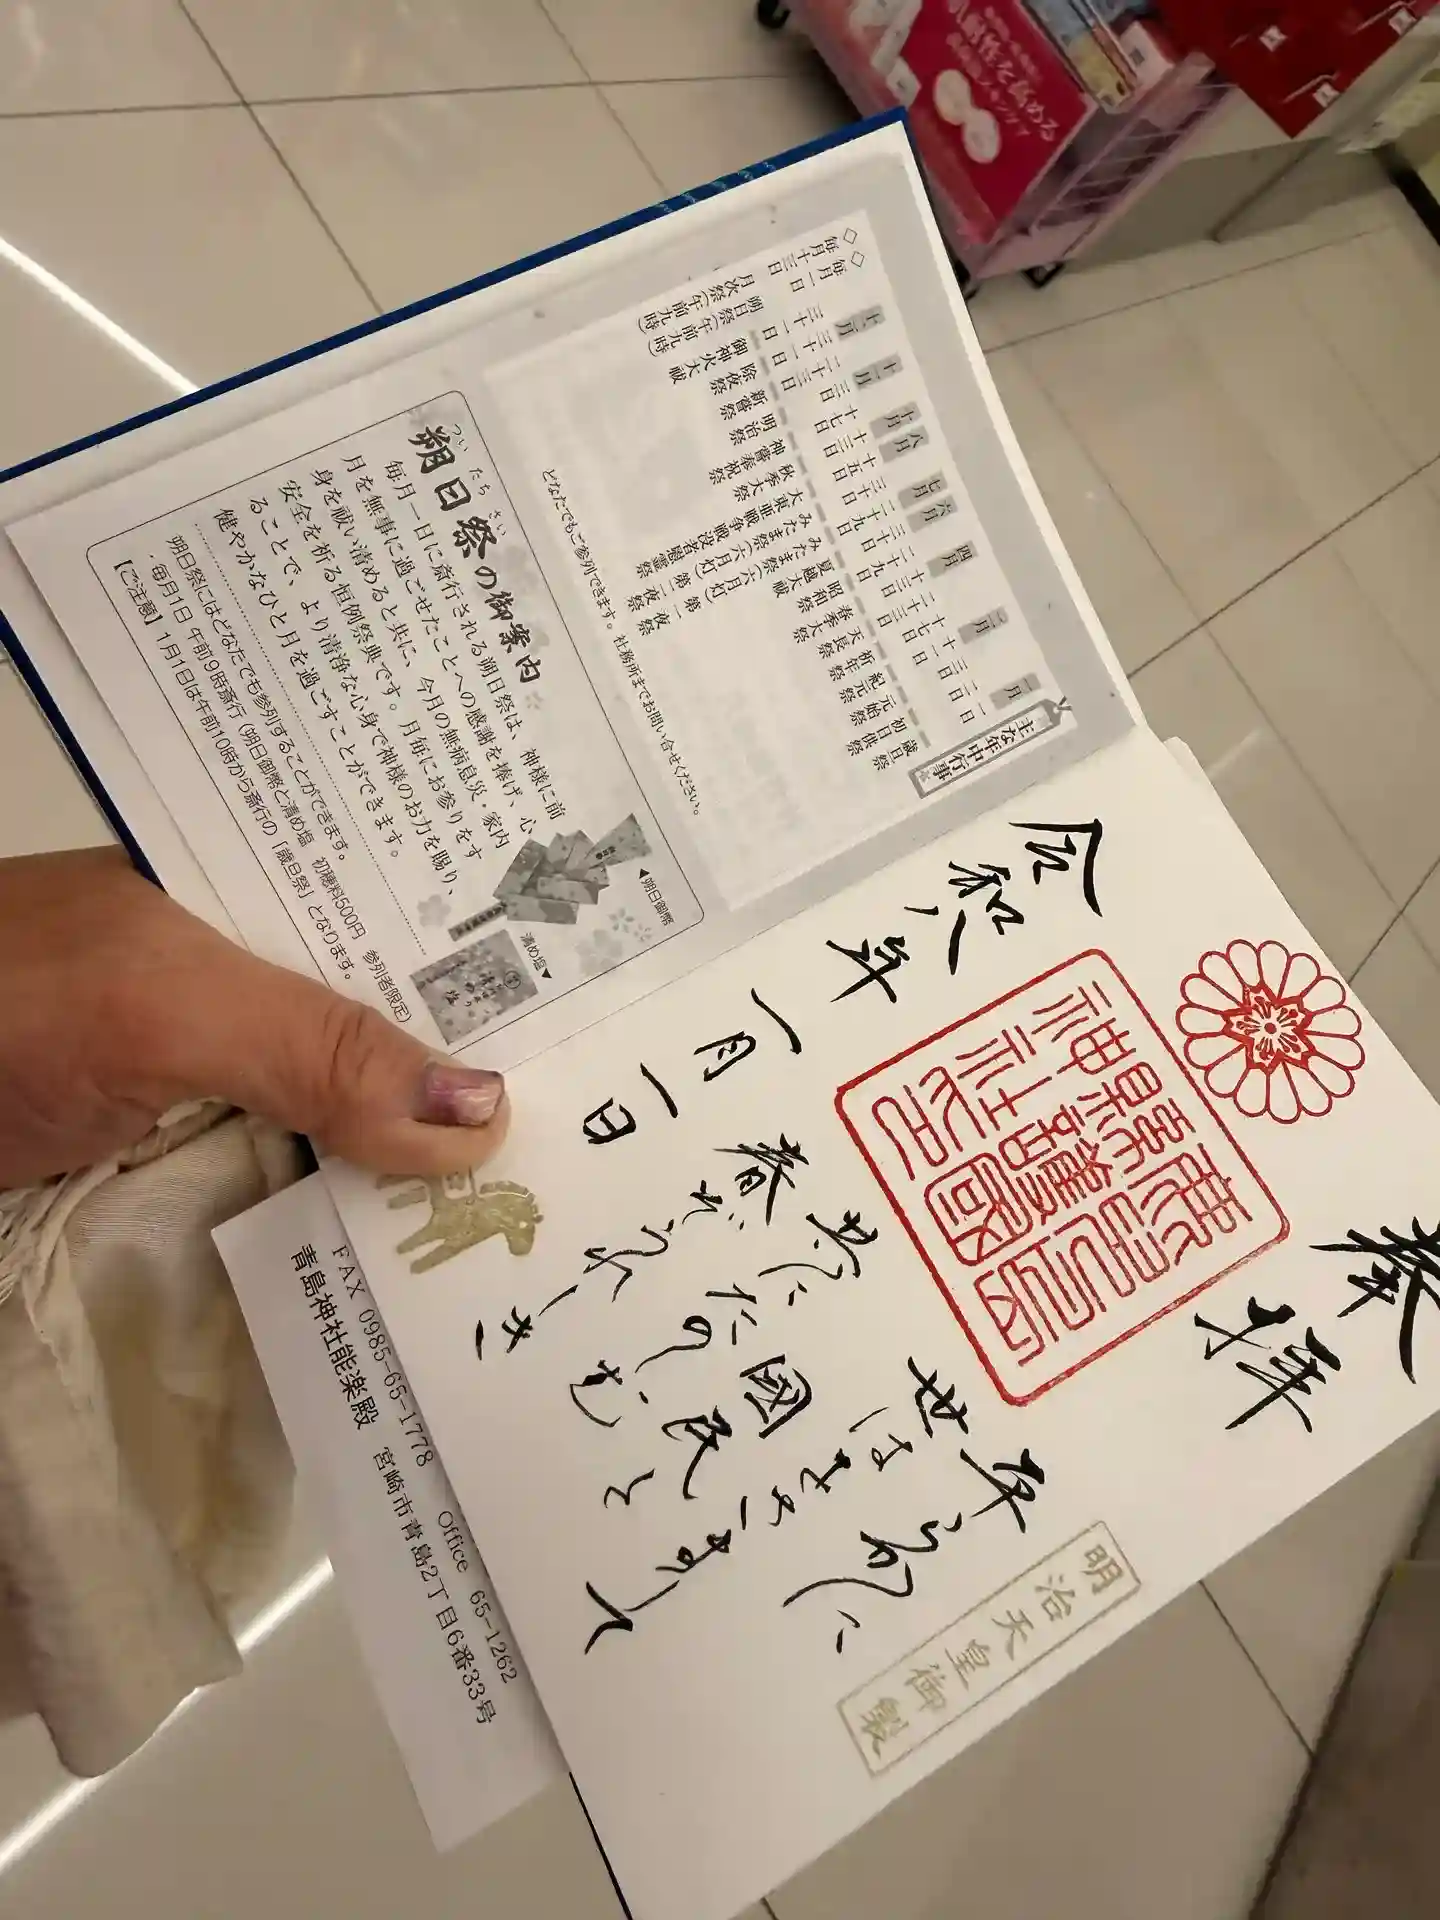 奉拝
令和八年
一月一日
平らかに
世はをさまりて
國民と
共にたのしき
春ぞうれしき
明治天皇御製
主な年中行事
一月
一日
歳旦祭
二日
初日供祭
三日
元始祭
二月
十一日
紀元祭
十七日
祈年祭
二十三日
天長祭
四月
十三日
春季大祭
二十九日
昭和祭
六月
三十日
夏越大祓
七月
二十九日
みたま祭(六月灯)第一夜祭
三十日
みたま祭(六月灯)第二夜祭
八月
十五日
大東亜戦争戦没者慰霊祭
十月
十三日
秋季大祭
十七日
神嘗奉祝祭
十一月
三日
明治祭
二十三日
新嘗祭
十二月
三十一日
除夜祭
三十一日
御神火大祓
◇毎月一日
朔日祭(午前九時)
◇毎月十三日
月次祭(午前九時)
どなたでもご参列できます。社務所までお問い合せください。
朔日祭の御案内
ついたちさい
毎月一日に斎行される朔日祭は、神様に前
月を無事に過ごせたことへの感謝を捧げ、心
身を祓い清めると共に、今月の無病息災・家内
安全を祈る恒例祭典です。月毎にお参りをす
ることで、より清浄な心身で神様のお力を賜り、
健やかなひと月を過ごすことができます。
▲朔日御幣
清め塩▼
朔日祭にはどなたでも参列することができます。
・毎月1日 午前9時斎行(朔日御幣と清め塩 初穂料500円 参列者限定)
【ご注意】1月1日は午前10時から斎行の「歳旦祭」となります。
FAX 0985-65-1778 Office 65-1262
青島神社能楽殿 宮崎市青島2丁目6番33号